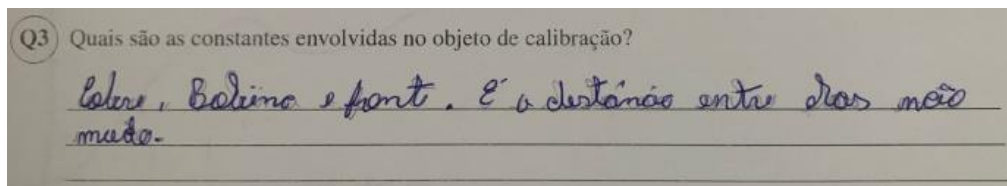 Q3) Quais são as constantes envolvidas no objeto de calibração?
Bolina e front. E a distância entre elas não
muda.